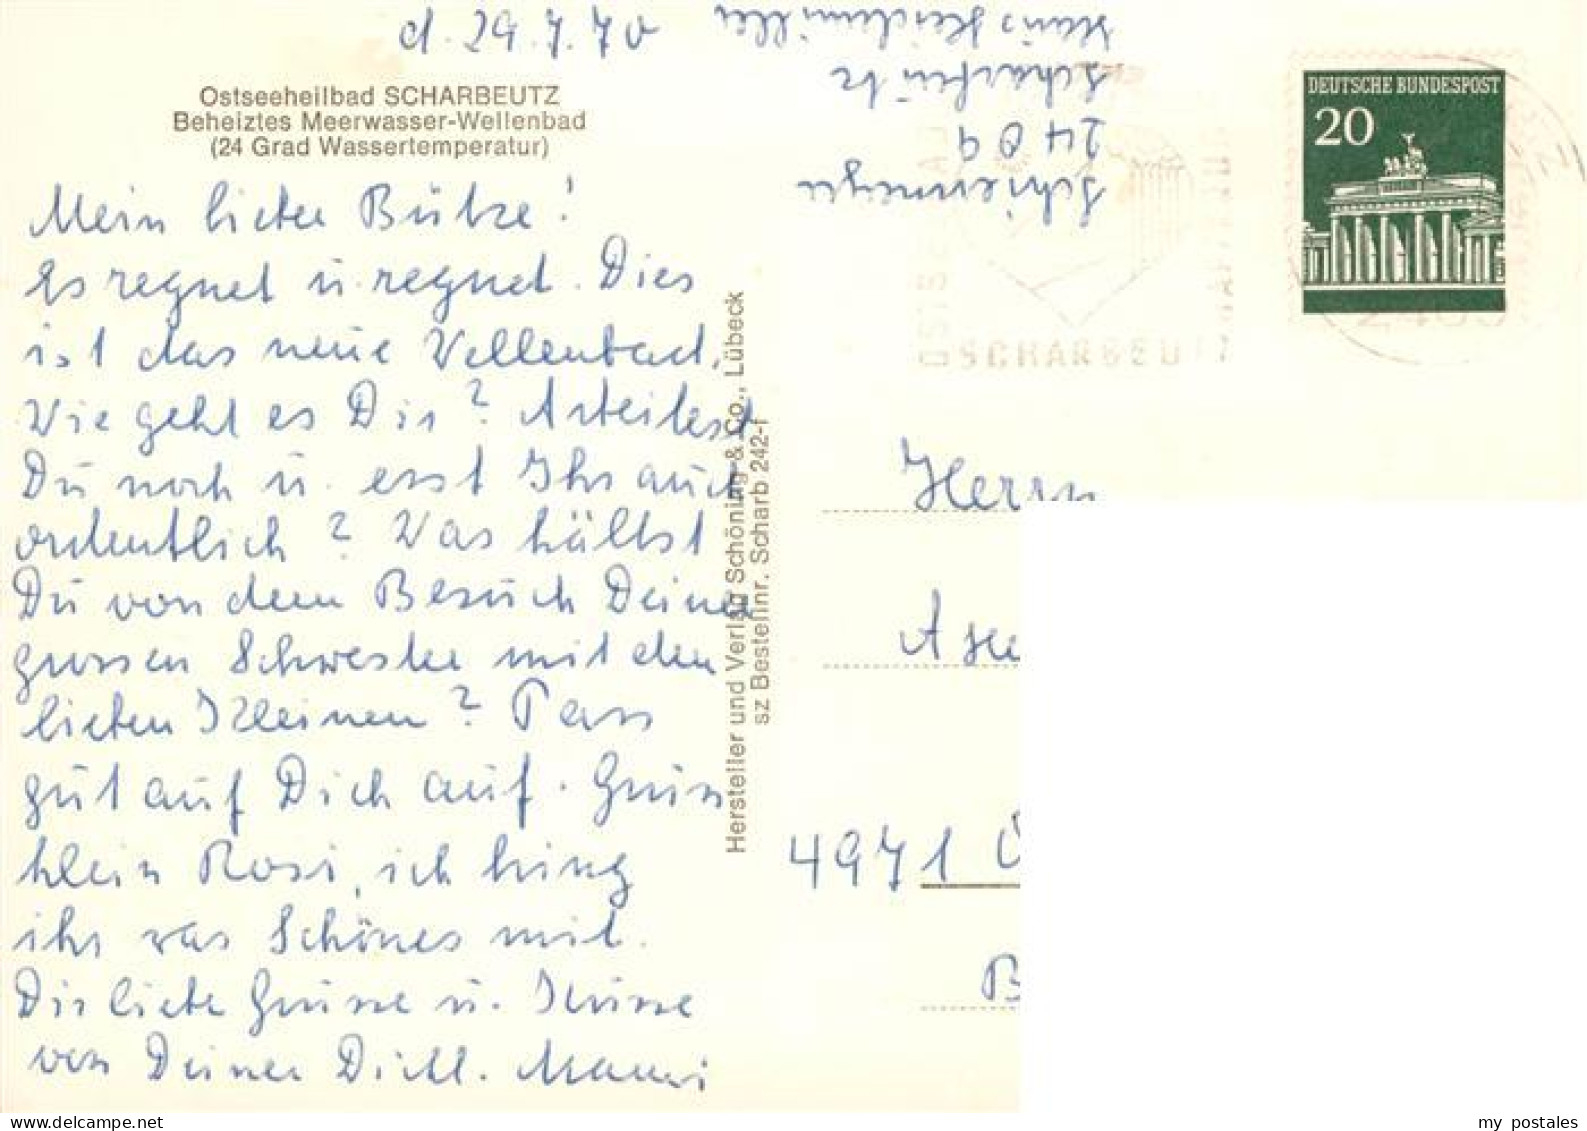 d. 29.7.70
Ostseeheilbad SCHARBEUTZ
Beheiztes Meerwasser-Wellenbad
(24 Grad Wassertemperatur)
Mein lieber Bütze!
Es regnet u. regnet. Dies
ist das neue Wellenbad.
Wie geht es Dir? Arbeitest
Du noch u. esst Ihr auch
ordentlich? Was hältst
Du von dem Besuch Deiner
grossen Schwester mit den
lieben Kleinen? Pass
gut auf Dich auf. Grüss
klein Rosi, ich bring
ihr was Schönes mit.
Dir liebe Grüsse u. Küsse
von Deiner Dickl. Mammi
Hersteller und Verlag Schöning & Co., Lübeck
sz Bestellnr. Scharb 242-f
2409
DEUTSCHE BUNDESPOST
20
SCHARBEU
Herrn
4971
my postales